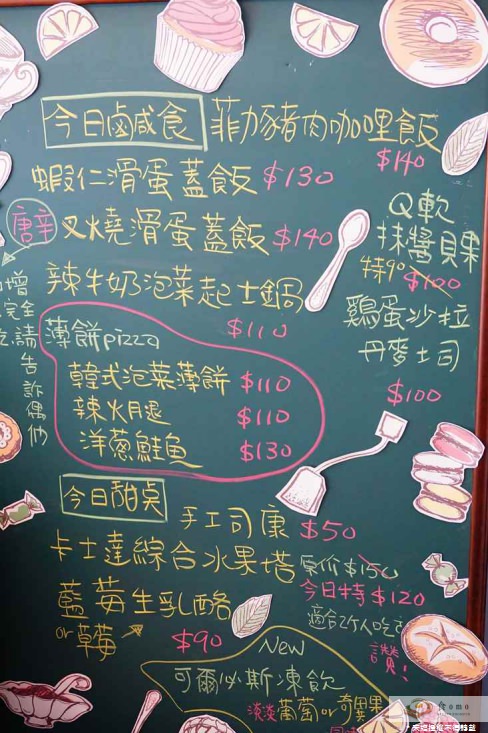 今日鹵咸食 菲力豬肉咖哩飯
$140
蝦仁滑蛋蓋飯 $130
唐辛 叉燒滑蛋蓋飯 $140
辣牛奶泡菜起士鍋
$110
Q軟
抹醬貝果
特90 $100
雞蛋沙拉
丹麥土司
$100
薄餅pizza
韓式泡菜薄餅 $110
辣火腿 $110
洋蔥鮭魚 $130
增
完全
請
告
訴
偶
們
今日甜桌
手工司康 $50
卡士達綜合水果塔
原价 $150
今日特 $120
適合2个人吃
讚!
藍莓生乳酪
or草莓
$90
New
可爾必斯凍飲
淡淡葡萄or奇異果
食omo